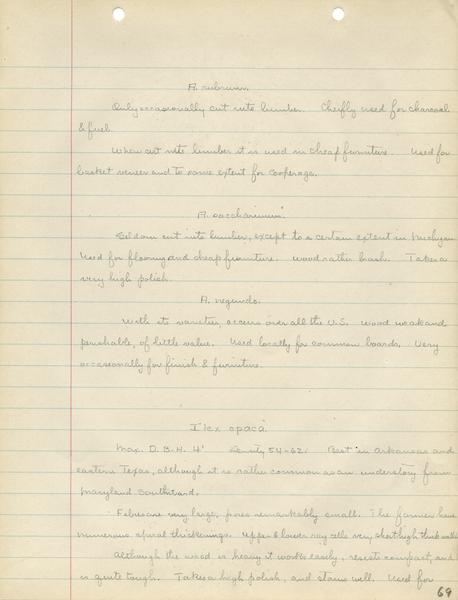 A. rubrum.
Only occasionally cut into lumber. Cheifly used for charcoal
& fuel.
When cut into lumber it is used in cheap furniture. Used for
basket veneer and to some extent for cooperage.
A. saccharinum.
Seldom cut into lumber, except to a certain extent in Michigan
Used for flooring and cheap furniture. wood rather brash. Takes a
very high polish.
A. negundo.
With its varieties, occurs over all the U.S. wood weak and
perishable, of little value. Used locally for common boards. Very
occasionally for finish & furniture.
Ilex opaca.
Max. D.B.H. 4' 54-62. Best in Arkansas and
eastern Texas, although it is rather common as an understory from
Maryland Southward.
Fibres are very large, pores remarkably small. The former have
numerous spiral thickenings. Upper & lower ray cells very short high thick walled
Although the wood is heavy it works easily, compact, and
is quite tough. Takes a high polish, and stains well. Used for
69